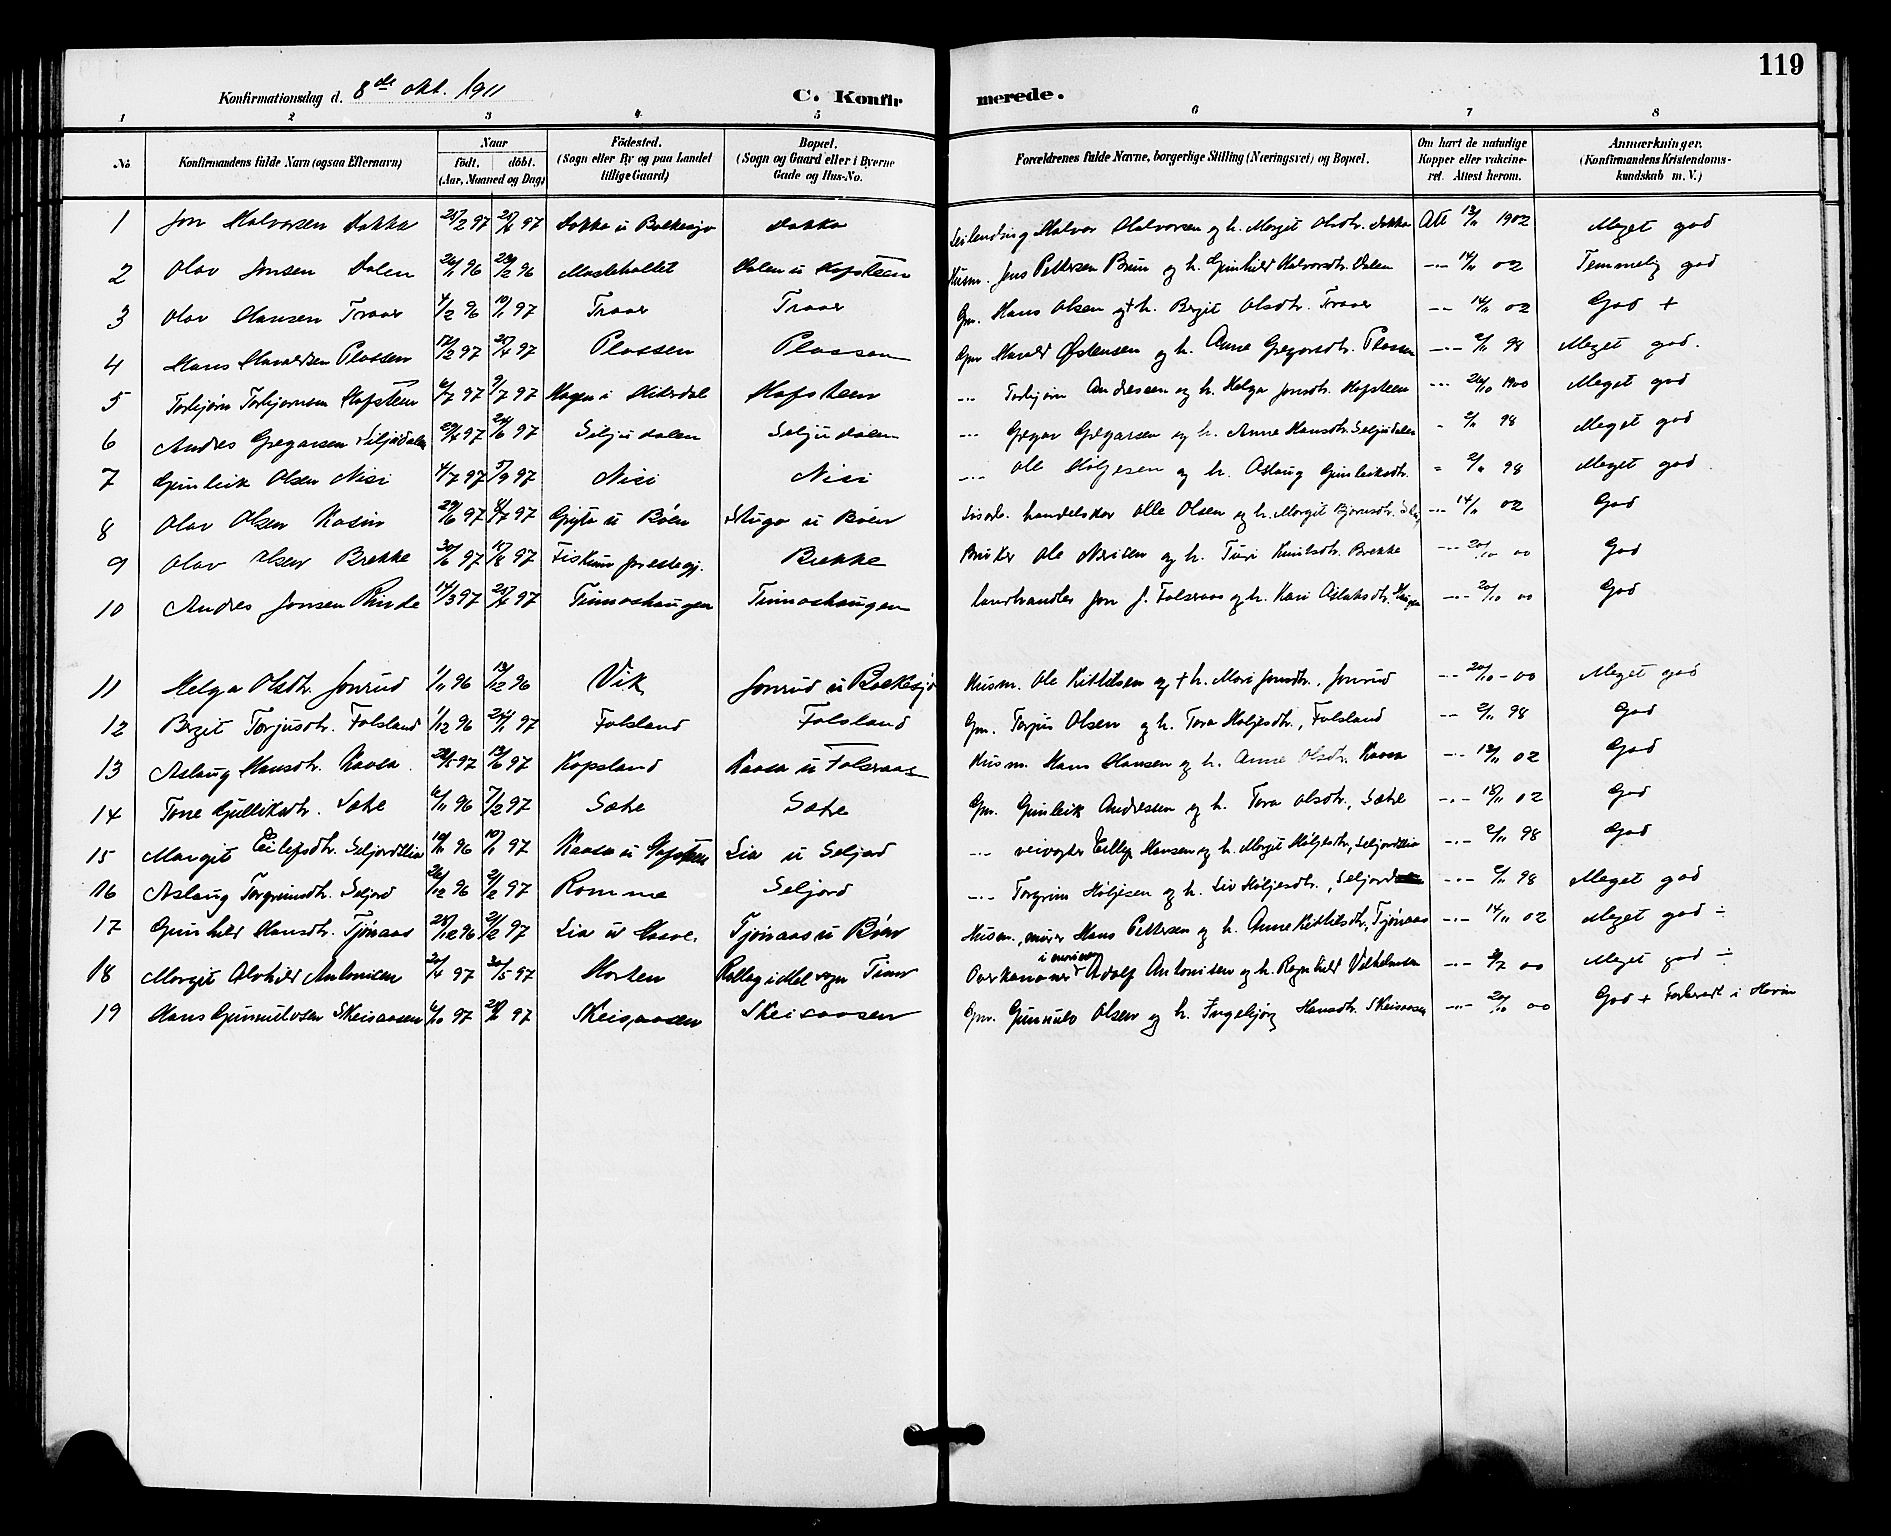 119
Konfirmationsdag d. 8de okt. 1911 C. Konfirmerede.
1 2 3 4 5 6 7 8
No Konfirmandens fulde Navn (ogsaa Efternavn) Naar födt. döbt. (Aar, Maaned og Dag) Födested. (Sogn eller By og paa Landet tillige Gaard) Bopæl. (Sogn og Gaard eller i Byerne Gade og Hus-No. Forældrenes fulde Navne, borgerlige Stilling (Næringsvei) og Bopæl. Om havt de naturlige Kopper eller vakcineret. Attest herom. Anmærkninger. (Konfirmandens Kristendomskundskab m. V.)
1 Jon Halvorsen Dokka 25/2 97 Dokka u Bolkesjø Dokka Leilending Halvor Halvorsen og h. Margit Olsdtr. Dokka Att 13/11 1902 Meget god
2 Olav Jonsen Dalen 26/1 96 23/2 96 Dalen u Hofsteen Husm. Jens Pettersen Brun og h. Gunhild Halvorsdtr. Dalen -"- 14/11 02 Temmelig god
3 Olav Hansen Traaer 4/12 96 10/1 97 Traaer Traaer Gm. Hans Olsen og + h. Bergit Olsdtr. Traaer -"- 14/11 02 God +
4 Hans Haraldsen Plassen 17/2 97 Plassen Plassen Gm Harald Østensen og h. Anne Gregarsdtr. Plassen -"- 2/11 98 Meget god.
5 Torbjørn Torbjørnsen Hofsteen 6/7 97 9/7 97 Hagen i Hiterdal Hofsteen -"- Torbjørn Andressen og h. Helga Jonsdtr. Hofsteen -"- 20/10 1900 Meget god
6 Andres Gregarsen Seljudalen 97 97 Selju dalen Selju dalen -"- Gregar Gregarsen og h. Anne Hansdtr. Seljudalen " 2/11 98 Meget god
7 Gunleik Olsen Nisi 4/7 97 5/9 97 Nisi Nisi -"- Ole Høljesen og h. Aslaug Gunleiksdtr. " 2/11 98 Meget god
8 Olav Olsen Kasin 29/6 97 97 u Bøen Stugo u Bøen handelskar Olle Olsen og h. Margit Bjørnsdtr. -"- 14/11 02 God
9 Olav Olsen Brekke 30/6 97 15/8 97 Fiskum prestegj. Brekke Bruker Ole Nirisen og h. Turi Knutsdtr. Brekke -"- 20/10 00 God
10 Andres Jonsen Rinde 14/3 97 97 Tinnoshaugen Tinnoshaugen Landhandler Jon J. Folseraas og h. Kari Aslaksdtr. -"- 20/10 00 God
11 Helga Olsdtr. Jonrud 1/11 96 13/12 96 Vik Jonrud u Bolkesjø Husm. Ole Kittilsen og + h. Mari Jonsdtr., Jonrud -"- 20/10 - 00 Meget god
12 Bergit Torjusdtr. Folsland 1/12 96 24/1 97 Folsland Folsland Gm. Torjus Olsen og h. Tora Høljesdtr., Folsland -"- 2/11 98 God
13 Aslaug Hansdtr. Kaasa 20/5 97 13/6 97 Kopsland Kaasa u Folseraas Husm. Hans Hansen og h. Anne Olsdr. Kaasa -"- 13/11 02 God
14 Tone Gulleiksdtr. Sætre 6/11 96 7/2 97 Sætre Sætre Gm. Gunleik Andressen og h. Tora Olsdtr., Sætre -"- 18/11 02 God
15 Margit Eilefsdtr. Seljordlia 96 10/1 97 Kaasa u Hofsteen Lia u Seljord -"- veivogter Eilef Hansen og h. Margit Høljesdtr., Seljordlia -"- 2/11 98 God
16 Aslaug Torgrimsdtr. Seljord 26/12 96 21/2 97 Romme Seljord -"- Torgrim Høljesen og h. Liv Høljesdtr., Seljord -"- 2/11 98 Meget god
17 Gunhild Hansdtr. Tjønaas 28/12 96 21/2 97 Lia u Tjønaas u Bøen Husm., murer Hans Pettersen og h. Anne Kittilsdtr., Tjønaas -"- 14/11 02 Meget god ÷
18 Margit Alvhild Antonisen 20/4 97 30/5 97 Horten Rollag sogn Tinn Overkanoner i marinen Adolf Antonisen og h. Ragnhild Vilhelmsen -"- 3/7 00 Meget god ÷
19 Hans Gunnulvsen Skeisaasen 6/10 97 97 Skeisaasen Skeisaasen Gm. Gunnulv Olsen og h. Ingebjørg Hansdtr. Skeisaasen -"- 20/10 00 God + Forberedt i Hovin